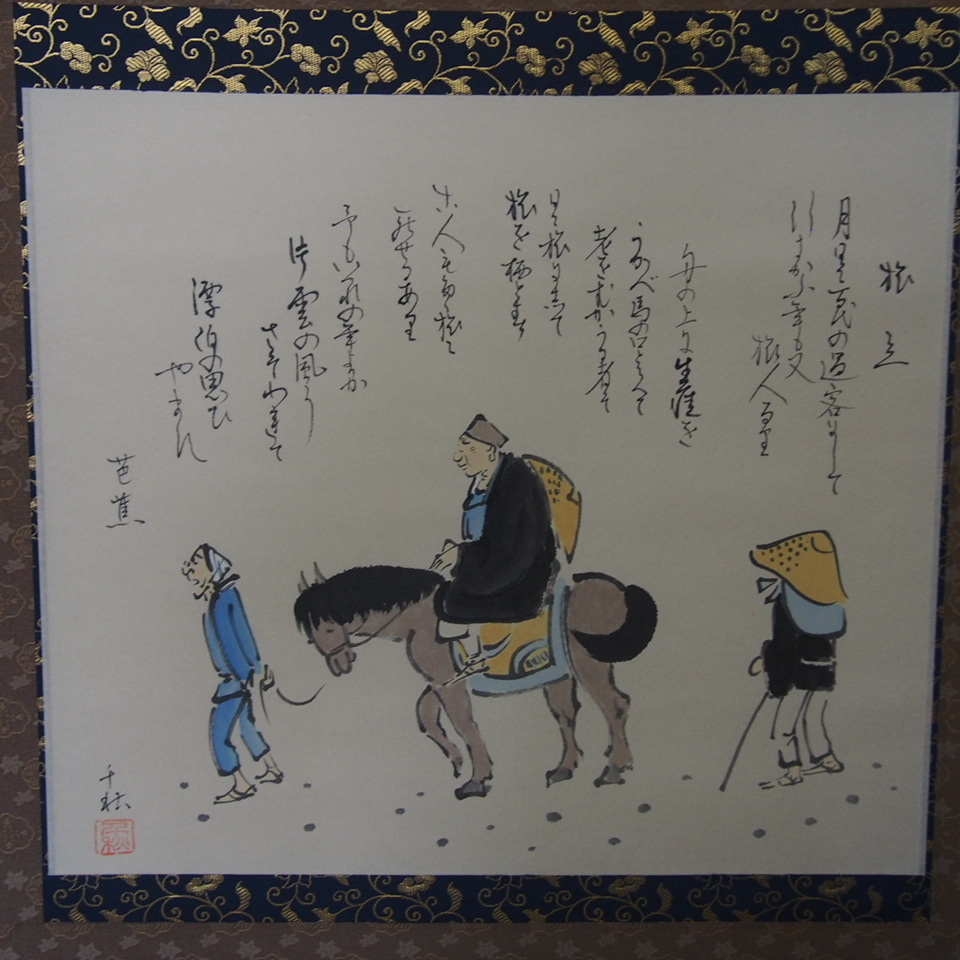 旅立
月日は百代の過客にして
行かふ年も又
旅人なり
舟の上に生涯を
うかべ馬の口とらへて
老をむかふる者は
日々旅にして
旅を栖とす
古人も多く旅に
死せるあり
予もいづれの年よりか
片雲の風に
さそはれて
漂泊の思ひ
やまず
芭蕉
千秋